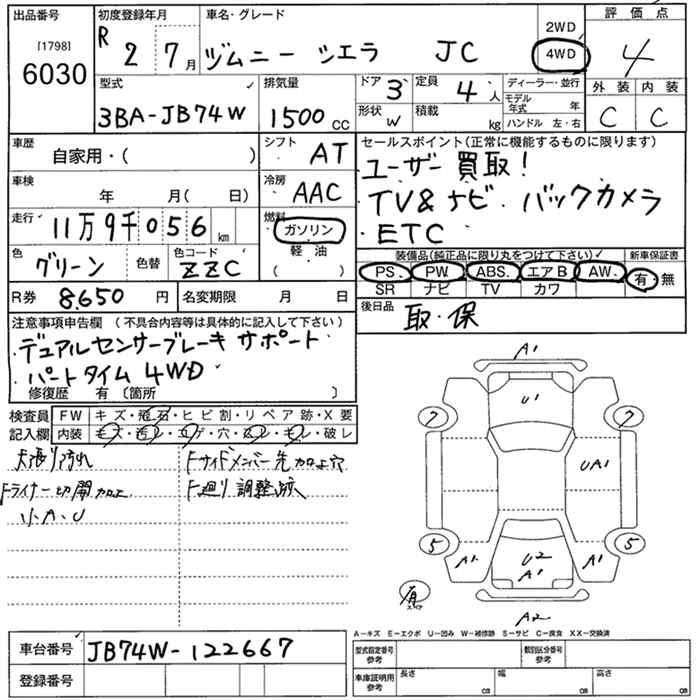 出品番号 初度登録年月 車名・グレード 評価点
[1798]
6030
R 2 7月 ジムニー シエラ JC 2WD 4WD 4
型式 排気量 ドア 3 定員 4人 ディーラー・並行 外装 内装
3BA-JB74W 1500 CC 形状 W 積載 kg モデル年式 年 C C
ハンドル 左・右
車歴 自家用・( ) シフト AT セールスポイント(正常に機能するものに限ります)
・ユーザー買取!
車検 年 月( 日) 冷房 AAC ・TV&ナビ・バックカメラ
走行 11万9千056km 燃料 ガソリン ・ETC
軽油
( )
色 グリーン 色替 色コード ZZC 装備品(純正品に限り丸をつけて下さい) 新車保証書
PS. PW. ABS. エアB AW. 有・無
SR ナビ TV カワ
R券 8,650 円 名変期限 月 日 後日品 取・保
注意事項申告欄 (不具合内容等は具体的に記入して下さい)
・デュアルセンサーブレーキサポート
・パートタイム4WD
修復歴 有 〔箇所 〕
検査員 FW キズ・飛石・ヒビ割・リペア跡・X要
記入欄 内装 キズ・汚レ・コゲ・穴・スレ・モレ・破レ
天張り汚れ Fサイドメンバー先加工穴
Fライナー切開加工 F廻り調整跡
小A、U
A1
U1
7 7
UA1
5 5
A1 U2 A1 A1
有
A2
A-キズ E-エクボ U-凹み W-補修跡 S-サビ C-腐食 XX-交換済
車台番号 JB74W-122667 型式指定番号 参考 類別区分番号 参考
登録番号 車庫証明用 参考 長さ cm 幅 cm 高さ cm